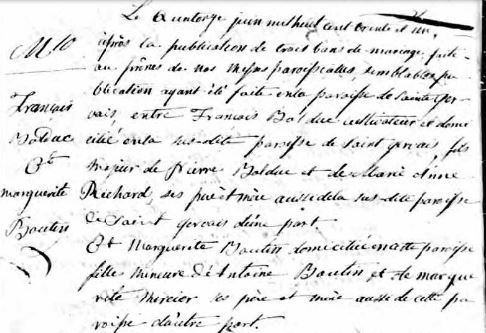 M 10
François
Bolduc
Et
marguerite
Boutin
Le Quatorze juin mil huit cent trente et un,
après la publication de trois bans de mariage faite
au prônes de nos messes paroissialles, semblable pu
blication ayant été faite en la paroisse de Saint Ger
vais, entre François Bolduc cultivateur et domi
cilié en la sus-dite paroisse de Saint gervais, fils
majeur de Pierre Bolduc et de Marie Anne
Richard, ses père et mère aussi de la sus-dite paroisse
de Saint gervais d'une part.
Et Marguerite Boutin domiciliée en cette paroisse
fille mineure d'Antoine Boutin et de margue
rite mercier ses père et mère aussi de cette pa
roisse d'autre part.